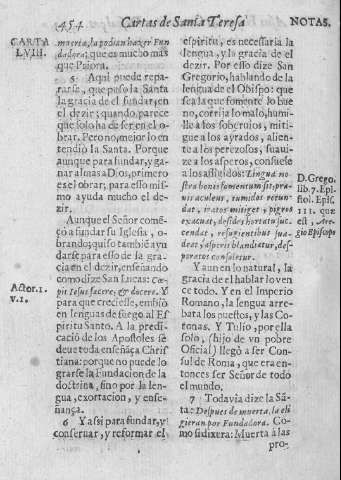 454
Cartas de Santa Teresa
NOTAS.
CARTA
LVIII.
muerta, la podian hazer Fun
dadora; que es mucho mas
que Priora.
5 Aqui puede repa-
rarse, que puso la Santa
la gracia del fundar, en
el dezir; quando parece
que solo ha de ser en el o-
brar. Pero mejor lo en
tendiò la Santa. Porque
aunque para fundar, y ga-
nar almas a Dios, primero
es el obrar; para esso mis-
mo ayuda mucho el de-
zir.
Aunque el Señor come-
çò a fundar su Iglesia, o-
brando; quiso tambié ayu-
darse para esso de la gra-
cia en el dezir, enseñando
como dize San Lucas: Cæ-
pit Iesus facere, & docere. Y
para que creciesse, embiò
en lenguas de fuego al Es
piritu Santo. A la predi-
cació de los Apostoles se
deue toda la enseñáça Chris
tiana: porque no puede lo
grarse la Fundacion de la
doctrina, sino por la len-
gua, exortacion, y ense-
ñança.
6 Y assi para fundar, y
conseruar, y reformar el
Actor. 1.
v. 1.
espiritu, es necessaria la
lengua, y la gracia de el
dezir. Por esso dize San
Gregorio, hablando de la
lengua de el Obispo: que
sea la que fomente lo bue
no, corrija lo malo, humi-
lle a los soberuios, miti-
gue a los ayrados, alien-
te a los perezosos, suaui-
ze a los asperos, consuele
a los afligidos: Lingua nos-
tra bonis fomentum sit, pra-
uis aculeus, tumidos retun-
dat, iratos mitiget, pigros
exacuat, desides hortatu suc-
cendat, refugientibus sua-
deat, asperis blandiatur, des-
peratos consoletur.
D. Grego.
lib. 7. Epi
stol. Epis.
111. que
est,
gio Episcopo
Y aun en lo natural, la
gracia de el hablar lo ven
ce todo. Y en el Imperio
Romano, la lengua arreba
taba los puestos, y las Co-
ronas. Y Tulio, por ella
solo, (hijo de vn pobre
Oficial) llegò a ser Con-
sul de Roma, que era en-
tonces ser Señor de todo
el mundo.
7 Todavia dize la Sã-
ta: Despues de muerta, la eli
gieran por Fundadora. Co-
mo si dixera: Muerta à las
pro-